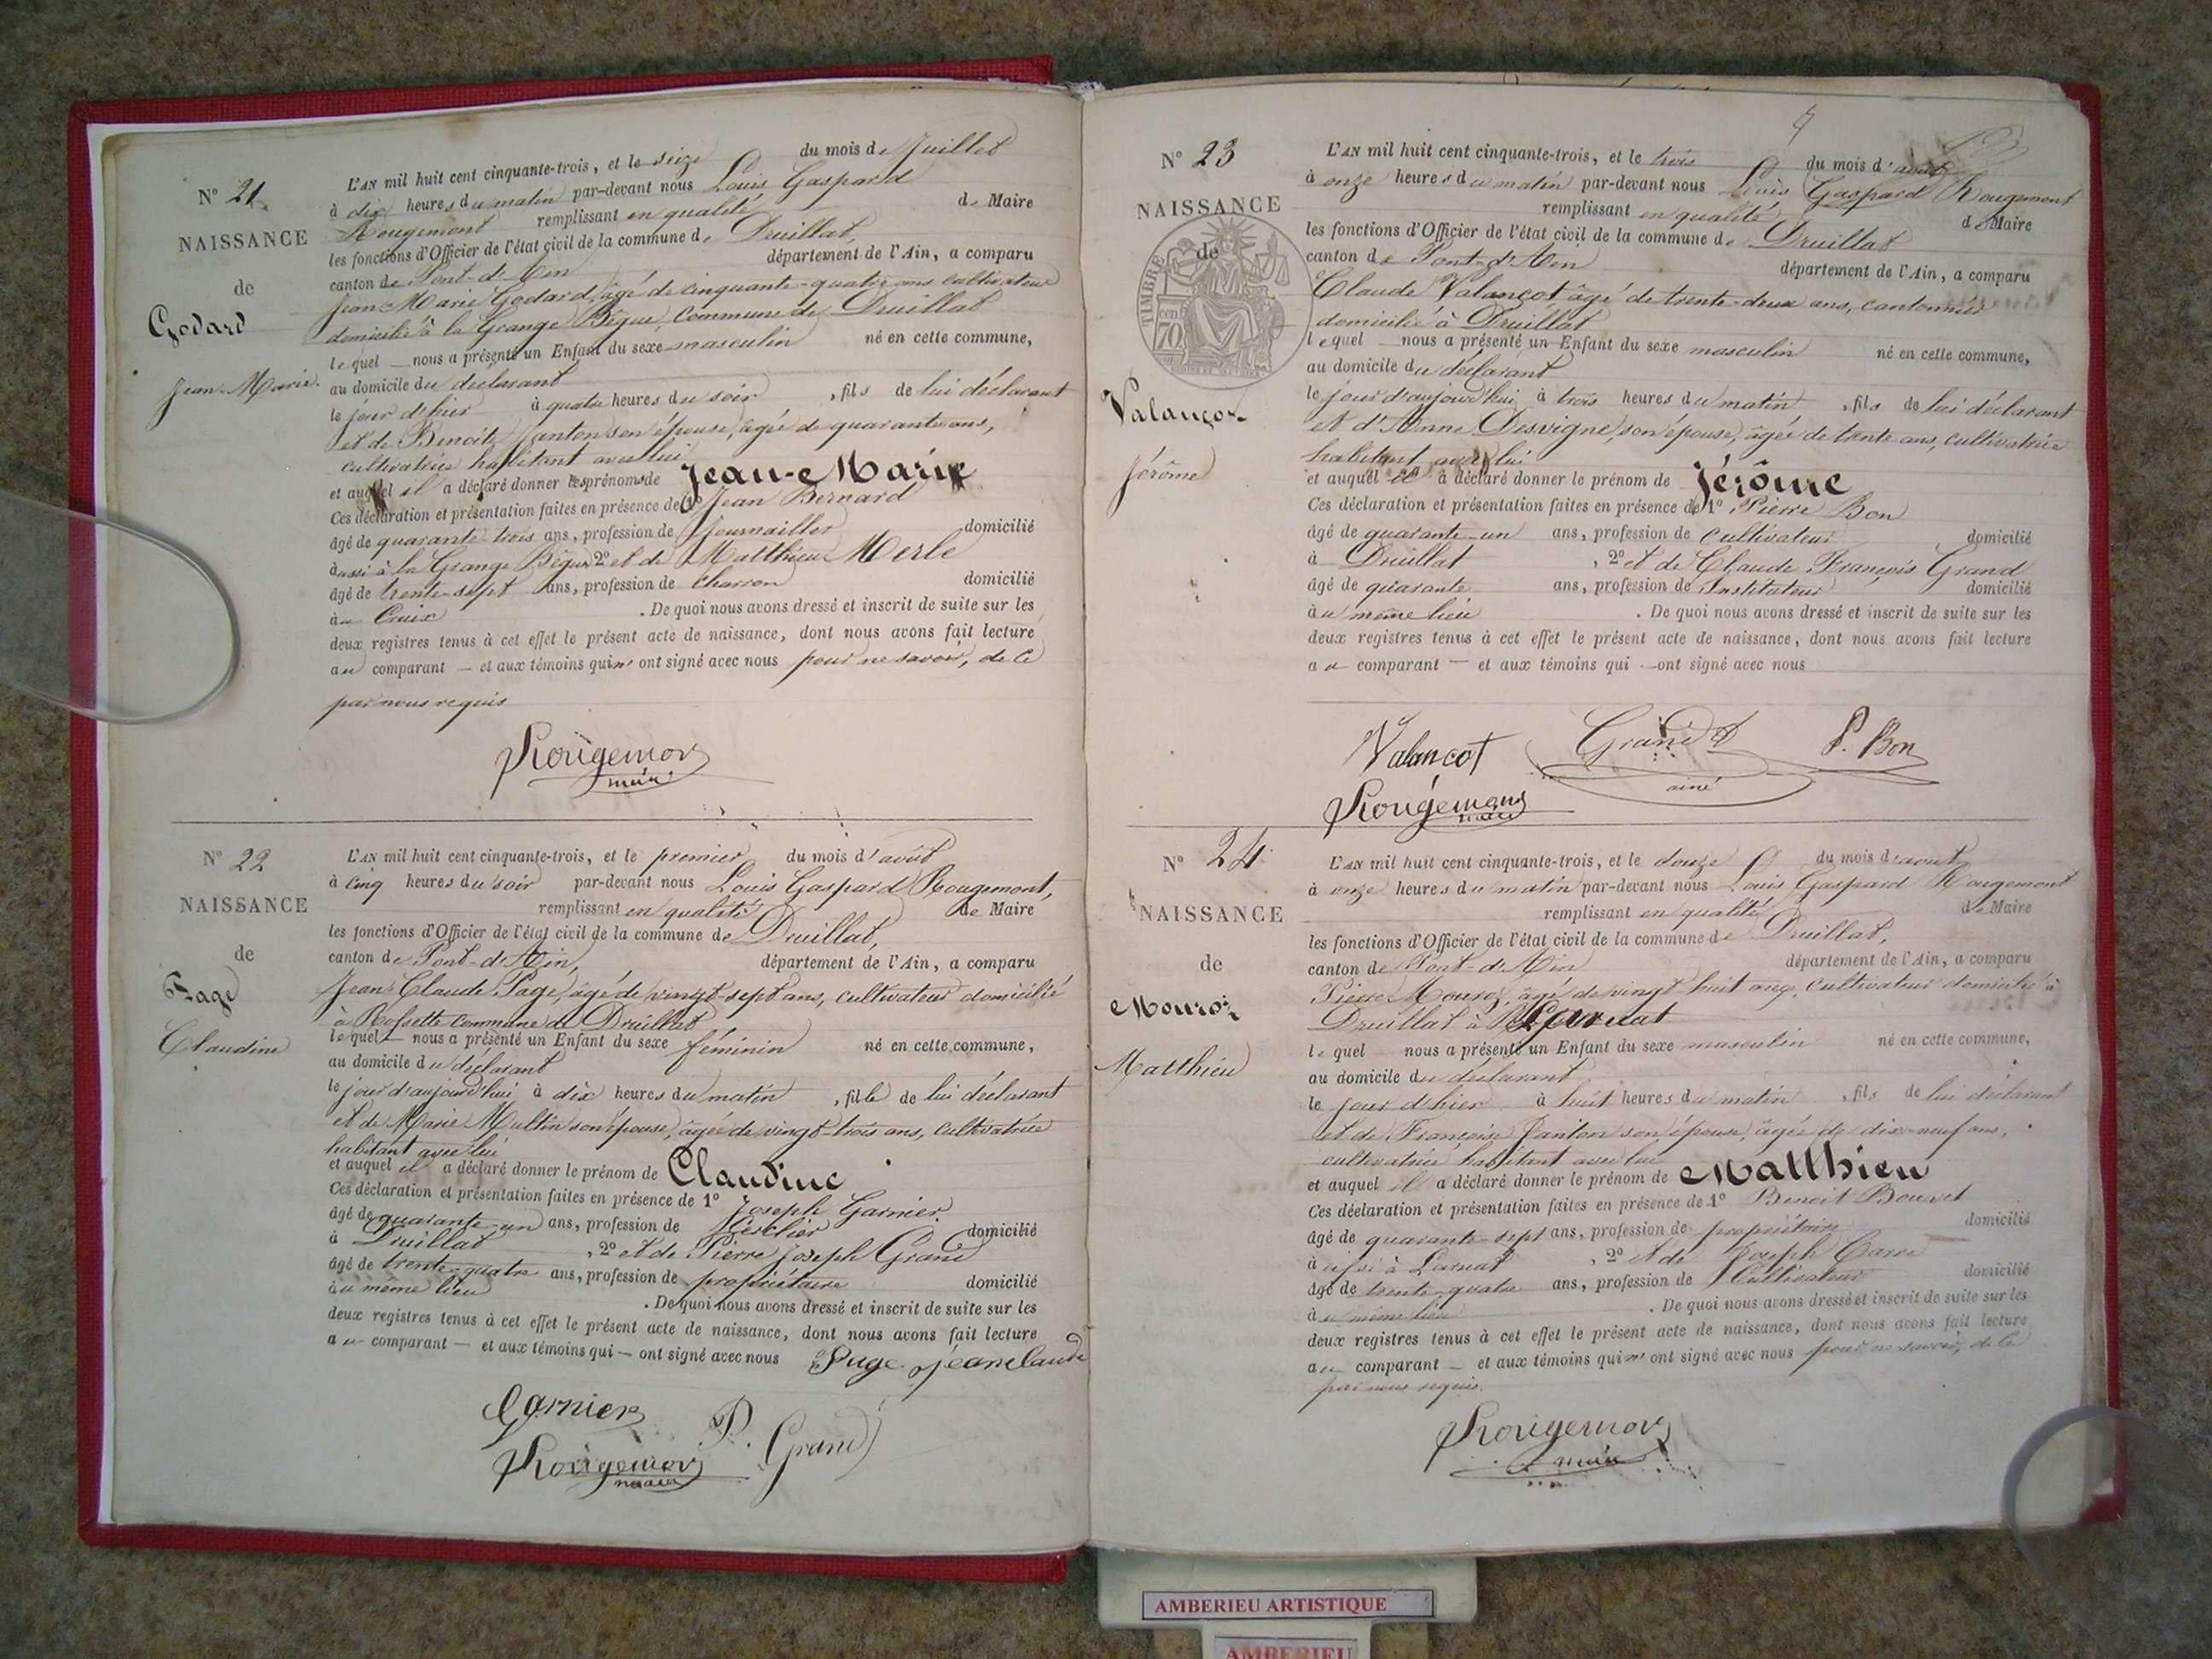 N° 21
NAISSANCE
de
Godard
Jean-Marie.
L'AN mil huit cent cinquante-trois, et le seize du mois de Juillet
à dix heures du matin par-devant nous Louis Gaspard
Rougemont remplissant en qualité de Maire
les fonctions d'Officier de l'état civil de la commune de Druillat,
canton de Pont-d'Ain département de l'Ain, a comparu
Jean-Marie Godard, âgé de cinquante-quatre ans cultivateur
domicilié à la Grange Bègue, Commune de Druillat
lequel nous a présenté un Enfant du sexe masculin né en cette commune,
au domicile du déclarant
le jour d'hier à quatre heures du soir, fils de lui déclarant
et de Benoite Janton son épouse, âgée de quarante ans,
cultivatrice habitant avec lui
et auquel il a déclaré donner les prénoms de Jean-Marie
Ces déclaration et présentation faites en présence de 1° Jean Bernard
âgé de quarante-trois ans, profession de Journaillier domicilié
aussi à la Grange Bègue, 2° et de Matthieu Merle
âgé de trente-sept ans, profession de Charron domicilié
au Cruix. De quoi nous avons dressé et inscrit de suite sur les
deux registres tenus à cet effet le présent acte de naissance, dont nous avons fait lecture
au comparant — et aux témoins qui n'ont signé avec nous pour ne savoir, de ce
par nous requis
Rougemont
maire
N° 22
NAISSANCE
de
Page
Claudine
L'AN mil huit cent cinquante-trois, et le premier du mois d'août
à cinq heures du soir par-devant nous Louis Gaspard Rougemont,
remplissant en qualité de Maire
les fonctions d'Officier de l'état civil de la commune de Druillat,
canton de Pont-d'Ain, département de l'Ain, a comparu
Jean-Claude Page, âgé de vingt-sept ans, cultivateur domicilié
à Rossette commune de Druillat
lequel nous a présenté un Enfant du sexe féminin né en cette commune,
au domicile du déclarant
le jour d'aujourd'hui à dix heures du matin, fille de lui déclarant
et de Marie Multin son épouse, âgée de vingt-trois ans, cultivatrice
habitant avec lui
et auquel il a déclaré donner le prénom de Claudine
Ces déclaration et présentation faites en présence de 1° Joseph Garnier
âgé de quarante-un ans, profession de domicilié
à Druillat, 2° et de Pierre Joseph Grand
âgé de trente-quatre ans, profession de propriétaire domicilié
au même lieu. De quoi nous avons dressé et inscrit de suite sur les
deux registres tenus à cet effet le présent acte de naissance, dont nous avons fait lecture
au comparant — et aux témoins qui — ont signé avec nous Page jeanclaude
Garnier P. Grand
Rougemont
maire
N° 23
NAISSANCE
de
TIMBRE
70
Valançot
Jérôme
L'AN mil huit cent cinquante-trois, et le trois du mois d'août
à onze heures du matin par-devant nous Louis Gaspard Rougemont
remplissant en qualité de Maire
les fonctions d'Officier de l'état civil de la commune de Druillat
canton de Pont-d'Ain département de l'Ain, a comparu
Claude Valançot âgé de trente-deux ans, cantonnier
domicilié à Druillat
lequel nous a présenté un Enfant du sexe masculin né en cette commune,
au domicile du déclarant
le jour d'aujourd'hui à trois heures du matin, fils de lui déclarant
et d'Anne Desvigne, son épouse, âgée de trente ans, cultivatrice
habitant avec lui
et auquel il a déclaré donner le prénom de Jérôme
Ces déclaration et présentation faites en présence de 1° Pierre Bon
âgé de quarante-un ans, profession de cultivateur domicilié
à Druillat, 2° et de Claude François Grand
âgé de quarante ans, profession de Instituteur domicilié
au même lieu. De quoi nous avons dressé et inscrit de suite sur les
deux registres tenus à cet effet le présent acte de naissance, dont nous avons fait lecture
au comparant — et aux témoins qui — ont signé avec nous
Valançot Grand P. Bon
ainé
Rougemont
maire
N° 24
NAISSANCE
de
Mouroz
Matthieu
L'AN mil huit cent cinquante-trois, et le douze du mois d'aout
à onze heures du matin par-devant nous Louis Gaspard Rougemont
remplissant en qualité de Maire
les fonctions d'Officier de l'état civil de la commune de Druillat,
canton de Pont-d'Ain département de l'Ain, a comparu
Pierre Mouroz, âgé de vingt-huit ans, cultivateur domicilié à
Druillat à
lequel nous a présenté un Enfant du sexe masculin né en cette commune,
au domicile du déclarant
le jour d'hier à huit heures du matin, fils de lui déclarant
et de Françoise Janton son épouse, âgée de dix-neuf ans,
cultivatrice habitant avec lui
et auquel il a déclaré donner le prénom de Matthieu
Ces déclaration et présentation faites en présence de 1° Benoit Bouvet
âgé de quarante-sept ans, profession de propriétaire domicilié
à, 2° et de Joseph
âgé de trente-quatre ans, profession de Cultivateur domicilié
au même lieu. De quoi nous avons dressé et inscrit de suite sur les
deux registres tenus à cet effet le présent acte de naissance, dont nous avons fait lecture
au comparant — et aux témoins qui n'ont signé avec nous pour ne savoir, de ce
par nous requis.
Rougemont
maire
AMBERIEU ARTISTIQUE
AMBERIEU